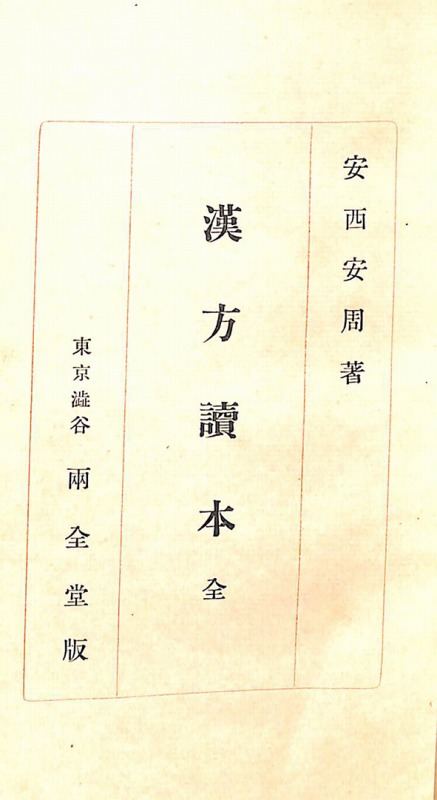 安西安周著
漢方讀本 全
東京澁谷 兩全堂版